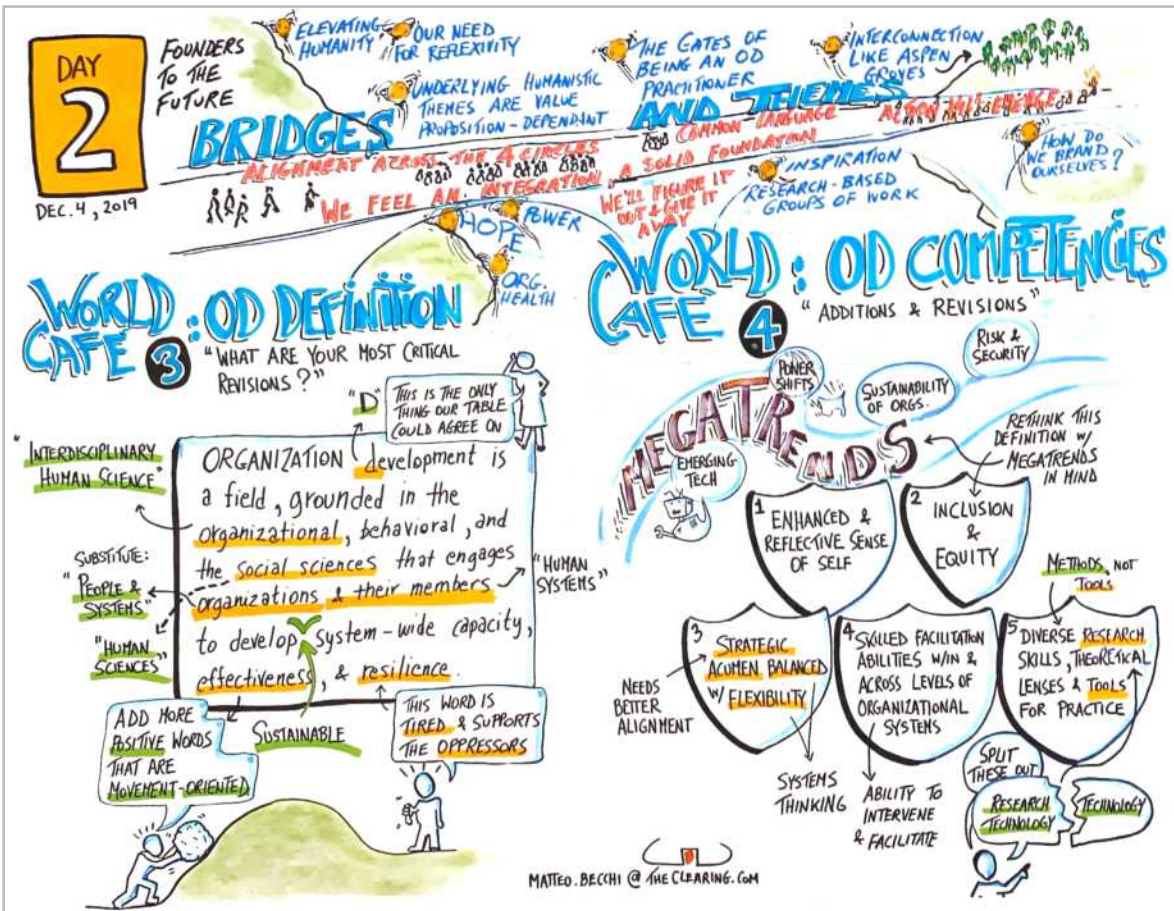 DAY
2
DEC. 4, 2019
FOUNDERS
TO THE
FUTURE
ELEVATING
HUMANITY
OUR NEED
FOR REFLEXIVITY
UNDERLYING HUMANISTIC
THEMES ARE VALUE
PROPOSITION - DEPENDENT
THE GATES OF
BEING AN OD
PRACTITIONER
INTERCONNECTION
LIKE ASPEN
GROVES
BRIDGES AND THEMES
ALIGNMENT ACROSS THE 4 CIRCLES
COMMON LANGUAGE
WE FEEL AN INTEGRATION
A SOLID FOUNDATION
WE'LL FIGURE IT
OUT & GIVE IT
AWAY
INSPIRATION
RESEARCH-BASED
GROUPS OF WORK
HOW DO
WE BRAND
OURSELVES?
HOPE
POWER
ORG.
HEALTH
WORLD
CAFE 3 : OD DEFINITION
"WHAT ARE YOUR MOST CRITICAL
REVISIONS?"
"D"
THIS IS THE ONLY
THING OUR TABLE
COULD AGREE ON
"INTERDISCIPLINARY
HUMAN SCIENCE"
ORGANIZATION development is
a field, grounded in the
organizational, behavioral, and
the social sciences that engages
organizations & their members
to develop system-wide capacity,
effectiveness, & resilience.
SUBSTITUTE:
"PEOPLE &
SYSTEMS"
"HUMAN
SCIENCES"
"HUMAN
SYSTEMS"
ADD MORE
POSITIVE WORDS
THAT ARE
MOVEMENT-ORIENTED
SUSTAINABLE
THIS WORD IS
TIRED & SUPPORTS
THE OPPRESSORS
WORLD
CAFE 4 : OD COMPETENCIES
"ADDITIONS & REVISIONS"
MEGATRENDS
EMERGING
TECH
POWER
SHIFTS
SUSTAINABILITY
OF ORGS.
RISK &
SECURITY
RETHINK THIS
DEFINITION W/
MEGATRENDS
IN MIND
1
ENHANCED &
REFLECTIVE SENSE
OF SELF
2
INCLUSION
&
EQUITY
METHODS, NOT
TOOLS
3
STRATEGIC
ACUMEN BALANCED
W/ FLEXIBILITY
NEEDS
BETTER
ALIGNMENT
SYSTEMS
THINKING
4
SKILLED FACILITATION
ABILITIES W/IN &
ACROSS LEVELS OF
ORGANIZATIONAL
SYSTEMS
ABILITY TO
INTERVENE
& FACILITATE
5
DIVERSE RESEARCH
SKILLS, THEORETICAL
LENSES & TOOLS
FOR PRACTICE
SPLIT
THESE OUT
RESEARCH
TECHNOLOGY
TECHNOLOGY
MATTEO.BECCHI @ THECLEARING.COM